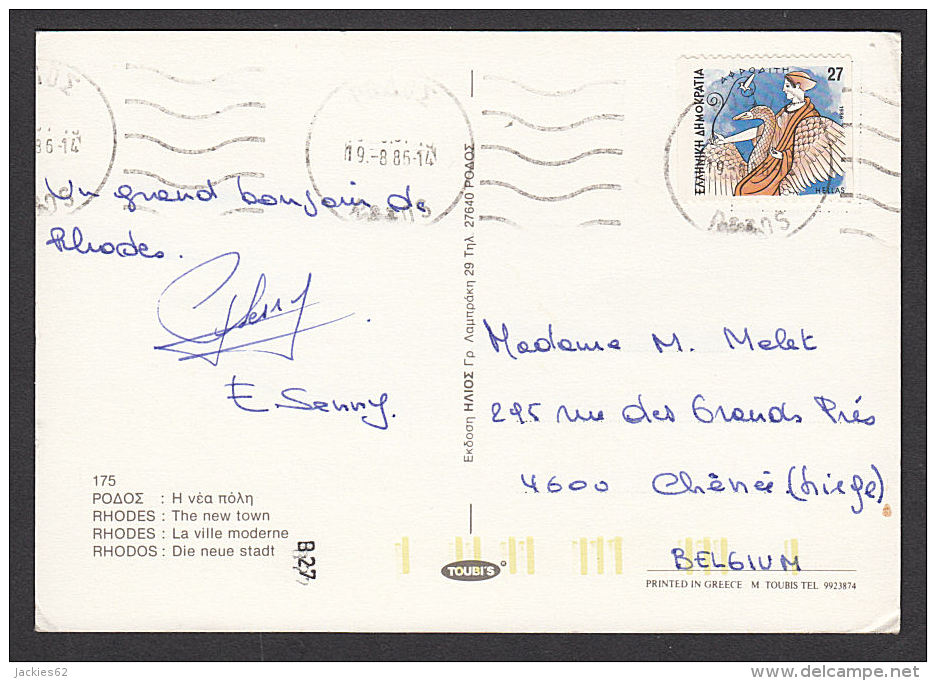 19.-8.86-14
ΑΦΡΟΔΙΤΗ
27
ΕΛΛΗΝΙΚΗ ΔΗΜΟΚΡΑΤΙΑ
1986
HELLAS
Un grand bonjour de
Rhodes.
E Senny.
Madame M. Melet
295 rue des Grands Prés
4600 Chênée (Liège)
BELGIUM
Εκδοση ΗΛΙΟΣ Γρ. Λαμπράκη 29 Τηλ. 27640 ΡΟΔΟΣ
175
ΡΟΔΟΣ : Η νέα πόλη
RHODES : The new town
RHODES : La ville moderne
RHODOS : Die neue stadt
B 27
TOUBI'S
PRINTED IN GREECE M TOUBIS TEL 9923874
jackies62
www.delcampe.net